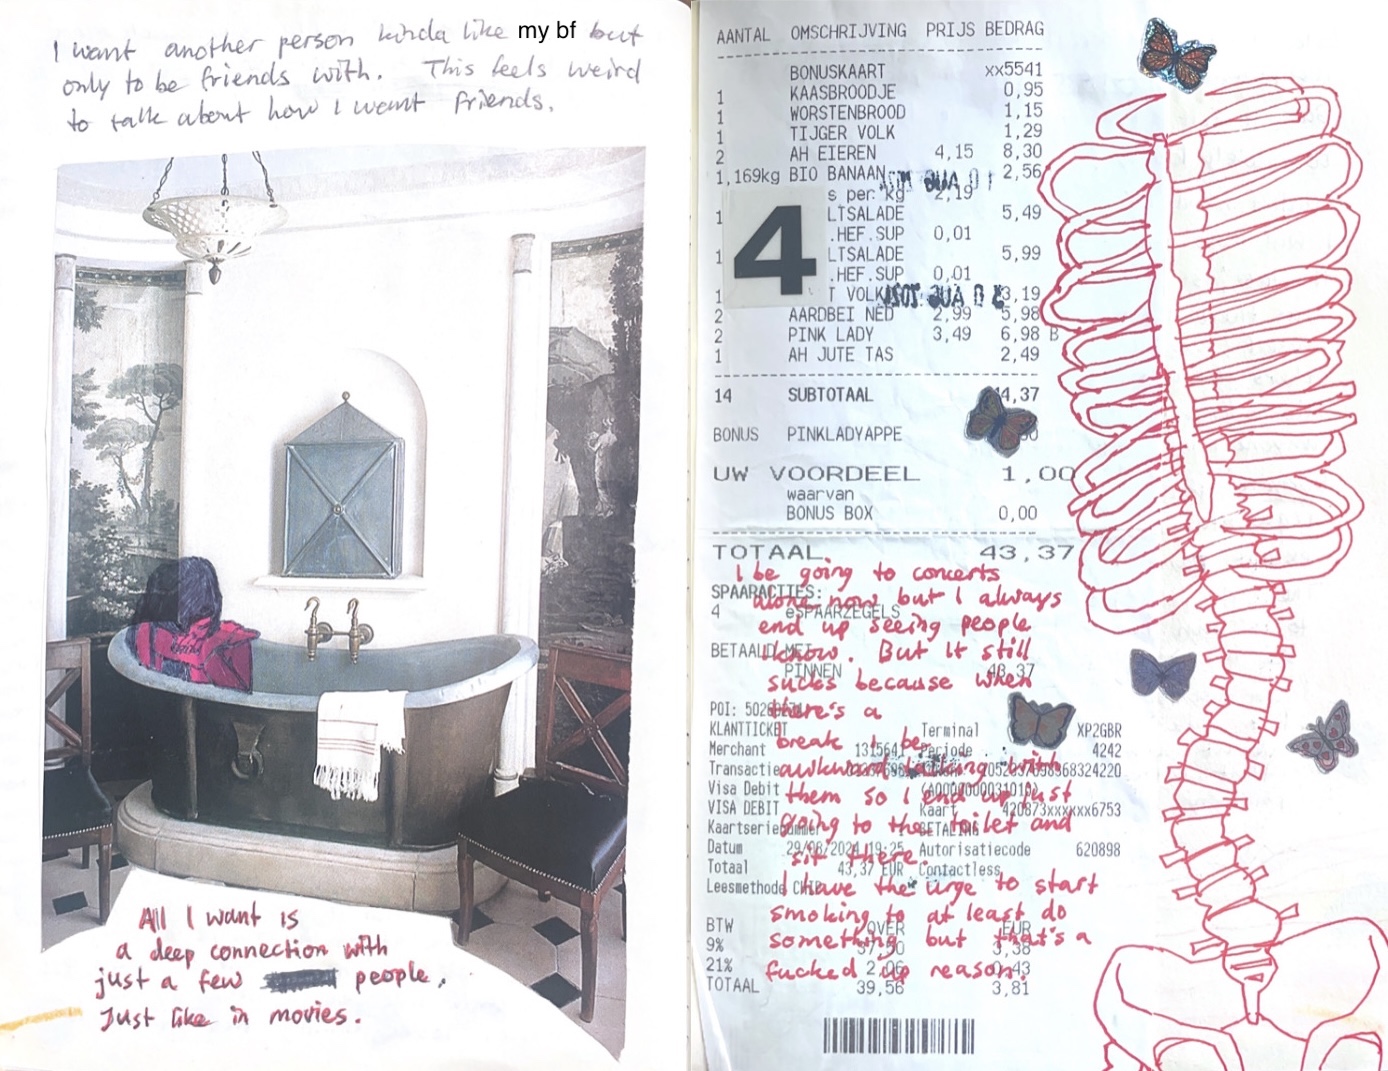 I want another person kinda like my bf but
only to be friends with. This feels weird
to talk about how I want friends.
All I want is
a deep connection with
just a few people.
Just like in movies.
AANTAL OMSCHRIJVING PRIJS BEDRAG
BONUSKAART xx5541
1 KAASBROODJE 0,95
1 WORSTENBROOD 1,15
1 TIJGER VOLK 1,29
2 AH EIEREN 4,15 8,30
1,169kg BIO BANAAN 2,56
s per kg 2,19
1 LTSALADE 5,49
.HEF.SUP 0,01
1 LTSALADE 5,99
.HEF.SUP 0,01
1 T VOLK 3,19
2 AARDBEI NED 2,99 5,98
2 PINK LADY 3,49 6,98 B
1 AH JUTE TAS 2,49
4
14 SUBTOTAAL 4,37
BONUS PINKLADYAPPE
UW VOORDEEL 1,00
waarvan
BONUS BOX 0,00
TOTAAL 43,37
SPAARACTIES:
4 eSPAARZEGELS
BETAALD MET
PINNEN 43,37
POI:
KLANTTICKET Terminal XP2GBR
Merchant Periode 4242
Transactie
Visa Debit
VISA DEBIT Kaart 420873xxxxxx6753
Kaartserienummer BETALING
Datum 29/08/2024 19:25 Autorisatiecode 620898
Totaal 43,37 EUR Contactless
Leesmethode CHIP
BTW OVER EUR
9% 3,38
21% 2,06 0,43
TOTAAL 39,56 3,81
I be going to concerts
alone now but I always
end up seeing people
I know. But it still
sucks because when
there's a
break I be
awkward talking with
them so I end up just
going to the toilet and
sit there.
I have the urge to start
smoking to at least do
something but that's a
fucked up reason.